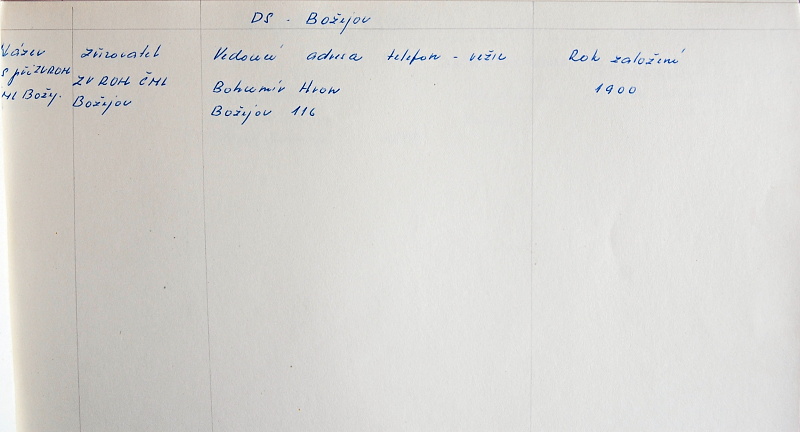 DS - Božejov
Název zřizovatel Vedoucí adresa telefon - režie Rok založení
S při ZV ROH ZV ROH ČML Bohumír Hron 1900
ML Božej. Božejov Božejov 116